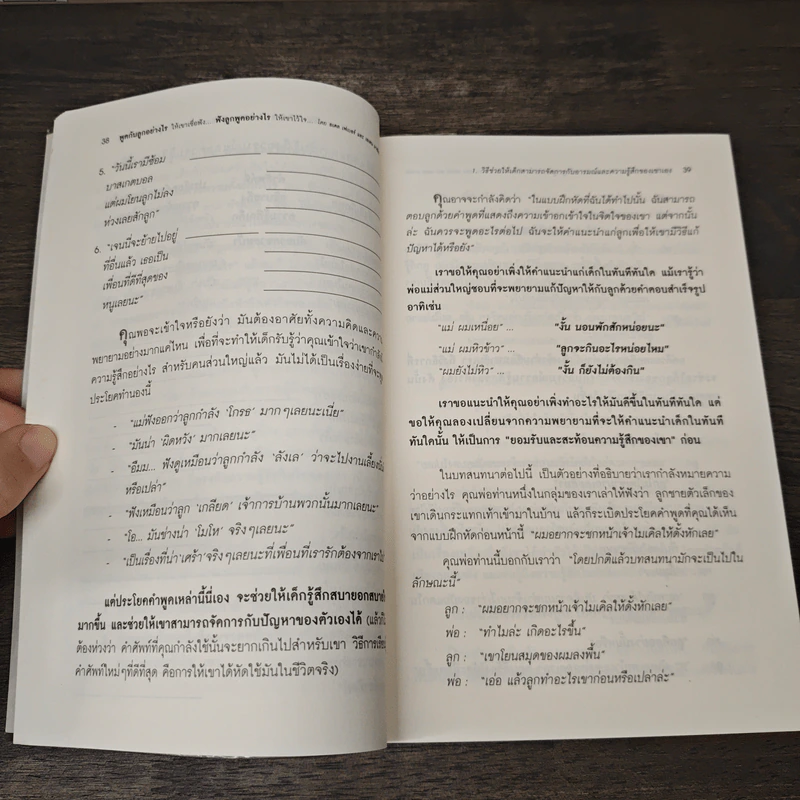 38 พูดกับลูกอย่างไร ให้เขาเชื่อฟัง... ฟังลูกพูดอย่างไร ให้เขาไว้ใจ... โดย
5. "วันนี้เรามีซ้อม
บาสเกตบอล
แต่ผมโยนลูกไม่ลง
ห่วงเลยสักลูก"
6. "เจนนี่จะย้ายไปอยู่
ที่อื่นแล้ว เธอเป็น
เพื่อนที่ดีที่สุดของ
หนูเลยนะ"
คุณพอจะเข้าใจหรือยังว่า มันต้องอาศัยทั้งความคิดและความ
พยายามอย่างมากแค่ไหน เพื่อที่จะทำให้เด็กรับรู้ว่าคุณเข้าใจว่าเขากำลัง
ความรู้สึกอย่างไร สำหรับคนส่วนใหญ่แล้ว มันไม่ได้เป็นเรื่องง่ายที่จะ
ประโยคทำนองนี้
- "แม่ฟังออกว่าลูกกำลัง 'โกรธ' มากๆเลยนะเนี่ย"
- "มันน่า 'ผิดหวัง' มากเลยนะ"
- "อืมม... ฟังดูเหมือนว่าลูกกำลัง 'ลังเล' ว่าจะไปงานเลี้ยง
หรือเปล่า"
- "ฟังเหมือนว่าลูก 'เกลียด' เจ้าการบ้านพวกนั้นมากเลยนะ"
- "โอ... มันช่างน่า 'โมโห' จริงๆเลยนะ"
- "เป็นเรื่องที่น่า'เศร้า'จริงๆเลยนะที่เพื่อนที่เรารักต้องจากเราไป
แต่ประโยคคำพูดเหล่านี้นี่เอง จะช่วยให้เด็กรู้สึกสบายอกสบายใจ
มากขึ้น และช่วยให้เขาสามารถจัดการกับปัญหาของตัวเองได้ (แล้ว
ต้องห่วงว่า คำศัพท์ที่คุณกำลังใช้นั้นจะยากเกินไปสำหรับเขา วิธีการเรียน
คำศัพท์ใหม่ๆที่ดีที่สุด คือการให้เขาได้หัดใช้มันในชีวิตจริง)
1. วิธีช่วยให้เด็กสามารถจัดการกับอารมณ์และความรู้สึกของเขาเอง 39
คุณอาจจะกำลังคิดว่า "ในแบบฝึกหัดที่ฉันได้ทำไปนั้น ฉันสามารถ
ตอบลูกด้วยคำพูดที่แสดงถึงความเข้าอกเข้าใจในจิตใจของเขา แต่จากนั้น
ล่ะ ฉันควรจะพูดอะไรต่อไป ฉันจะให้คำแนะนำแก่ลูกเพื่อให้เขามีวิธีแก้
ปัญหาได้หรือยัง"
เราขอให้คุณอย่าเพิ่งให้คำแนะนำแก่เด็กในทันทีทันใด แม้เรารู้ว่า
พ่อแม่ส่วนใหญ่ชอบที่จะพยายามแก้ปัญหาให้กับลูกด้วยคำตอบสำเร็จรูป
อาทิเช่น
"แม่ ผมเหนื่อย" ... "งั้น นอนพักสักหน่อยนะ"
"แม่ ผมหิวข้าว" ... "ลูกจะกินอะไรหน่อยไหม"
"ผมยังไม่หิว" ... "งั้น ก็ยังไม่ต้องกิน"
เราขอแนะนำให้คุณอย่าเพิ่งทำอะไรให้มันดีขึ้นในทันทีทันใด แต่
ขอให้คุณลองเปลี่ยนจากความพยายามที่จะให้คำแนะนำเด็กในทันที
ทันใดนั้น ให้เป็นการ "ยอมรับและสะท้อนความรู้สึกของเขา" ก่อน
ในบทสนทนาต่อไปนี้ เป็นตัวอย่างที่อธิบายว่าเรากำลังหมายความ
ว่าอย่างไร คุณพ่อท่านหนึ่งในกลุ่มของเราเล่าให้ฟังว่า ลูกชายตัวเล็กของ
เขาเดินกระแทกเท้าเข้ามาในบ้าน แล้วก็ระเบิดประโยคคำพูดที่คุณได้เห็น
จากแบบฝึกหัดก่อนหน้านี้ "ผมอยากจะชกหน้าเจ้าไมเคิลให้ดั้งหักเลย"
คุณพ่อท่านนี้บอกกับเราว่า "โดยปกติแล้วบทสนทนามักจะเป็นไปใน
ลักษณะนี้"
ลูก : "ผมอยากจะชกหน้าเจ้าไมเคิลให้ดั้งหักเลย"
พ่อ : "ทำไมล่ะ เกิดอะไรขึ้น"
ลูก : "เขาโยนสมุดของผมลงพื้น"
พ่อ : "เอ่อ แล้วลูกทำอะไรเขาก่อนหรือเปล่าล่ะ"